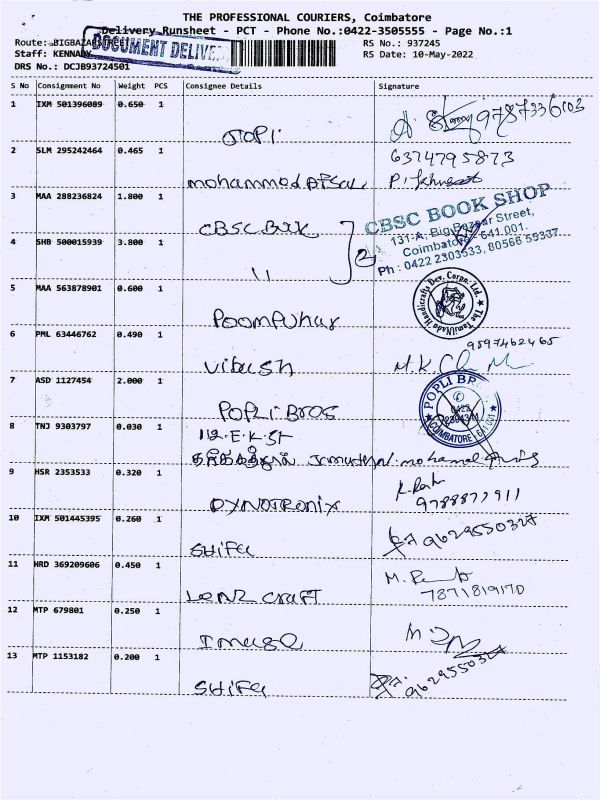 THE PROFESSIONAL COURIERS, Coimbatore
Delivery Runsheet - PCT - Phone No.:0422-3505555 - Page No.:1
Route: BIGBAZAR
DOCUMENT DELIVE
RS No.: 937245
Staff: KENNADY
RS Date: 10-May-2022
DRS No.: DCJB93724501
S No Consignment No Weight PCS Consignee Details Signature
1 IXM 501396089 0.650 1
9787336103
GOPI
2 SLM 295242464 0.465 1
6374795873
mohammed Afsal
3 MAA 288236824 1.800 1
CBSC Book
CBSC BOOK SHOP
131-A, Big Bazaar Street,
Coimbatore - 641 001.
Ph : 0422 2303533, 80566 59337
4 SHB 500015939 3.800 1
2
"
5 MAA 563878901 0.600 1
Poompuhar
The TamilNadu Handicrafts Dev. Corpn. Ltd.
6 PML 63446762 0.490 1
9597462465
Vibush
7 ASD 1127454 2.000 1
POPLI BROS
POPLI BR
0422
COIMBATORE - 641 001
8 TNJ 9303797 0.030 1
112.E.K.St
9 HSR 2353533 0.320 1
9788877911
DYNOTRONIX
10 IXM 501445395 0.260 1
9629550327
SHIFA
11 HRD 369209606 0.450 1
7871819170
LENZ CRAFT
12 MTP 679801 0.250 1
Image
13 MTP 1153182 0.200 1
9629550327
SHIFA